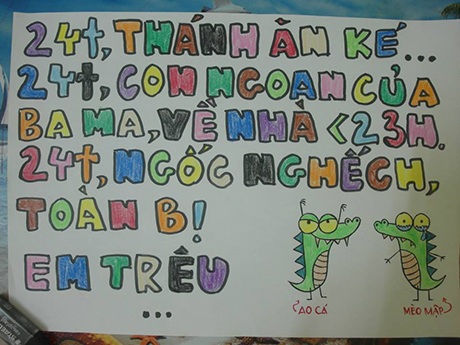 24t, THÁNH ĂN KÉ...
24t, CON NGOAN CỦA
BA MA, VỀ NHÀ <23H.
24t, NGỐC NGHẾCH,
TOÀN B!
EM TRÊU
...
CÁO CÁ
MÈO MẬP